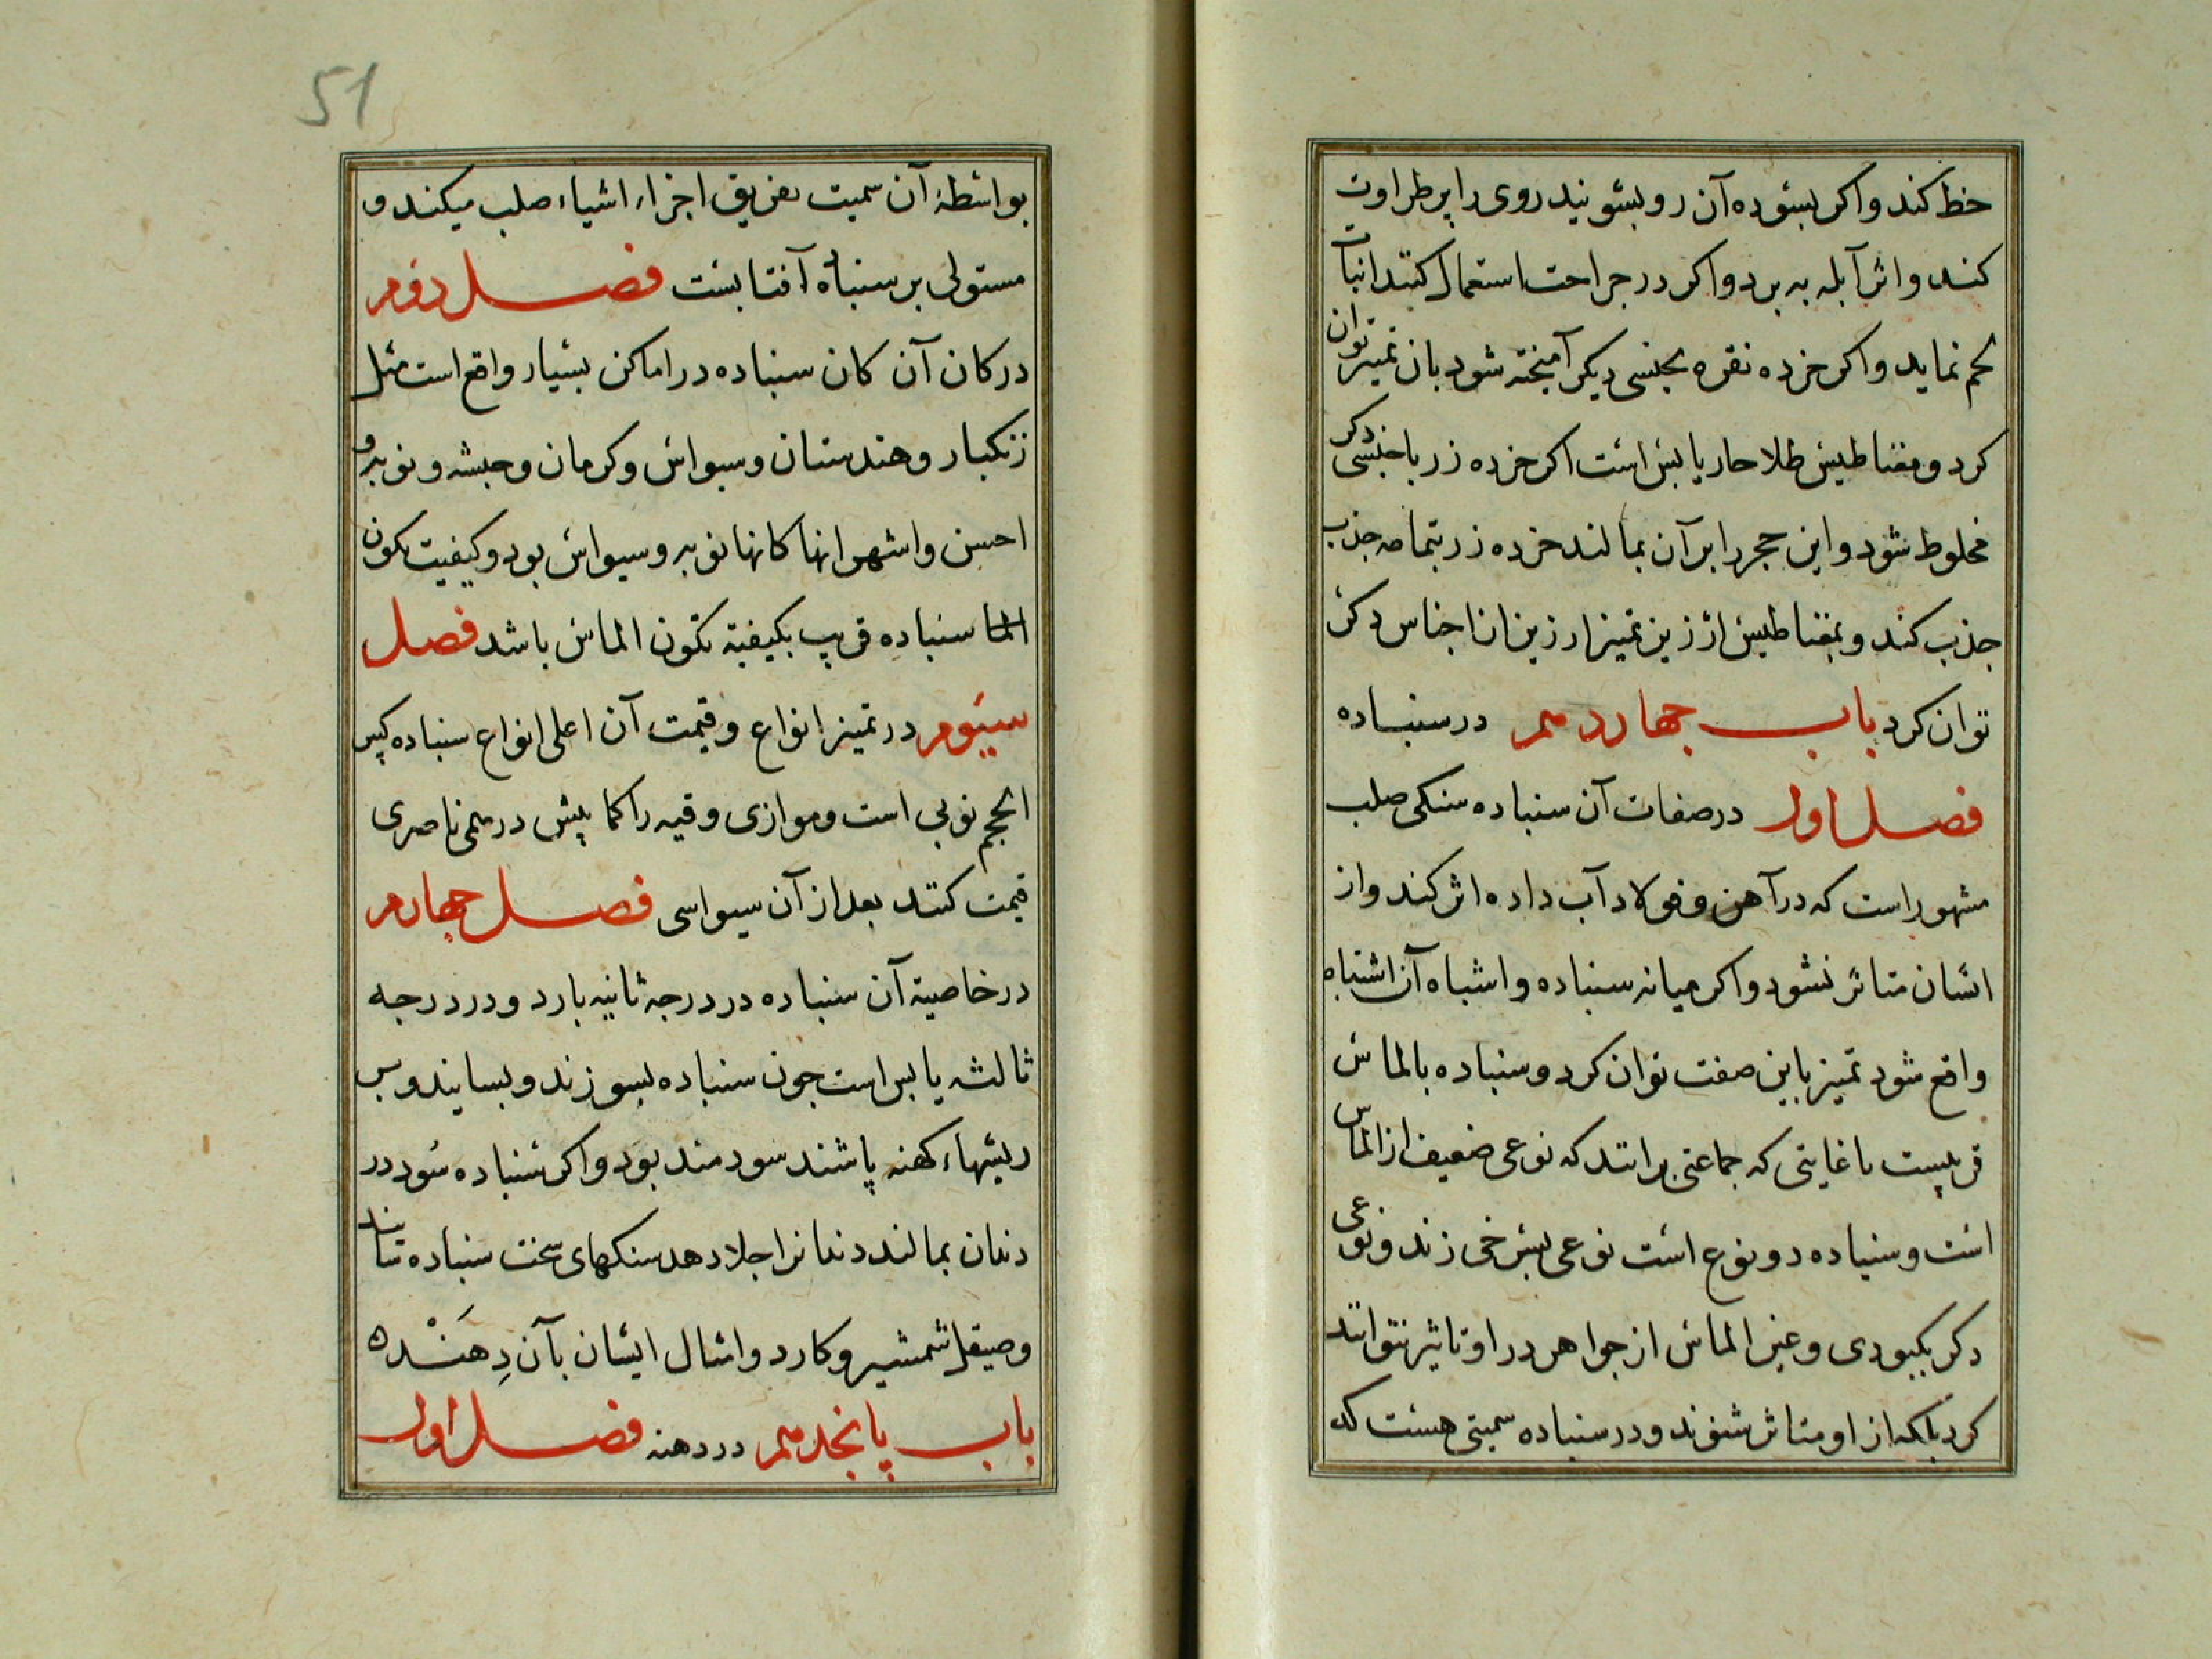 حظ کند واکر بسوده آن رو بشویند روی را پر طراوت
کند واثر آبله به برد واکر در جراحت استعمال کنند انبات
لحم نماید واکر خرده نقره بجنسی دیکر آمیخته شود بان تمییز توان
کرد ومغناطیس طلا حار یابس است اکر خرده زر با جنسی دکر
مخلوط شود واین حجر را بر آن بمالند خرده زر بتمامه جذب
جذب کند وبمغناطیس ارزیز تمیز ارزیز از اجناس دکر
توان کرد باب چهاردهم در سنباده
فصل اول در صفات آن سنباده سنکی صلب
مشهور است که در آهن وفولاد آب داده اثر کند واز
اشان متاثر نشود واکر میانه سنباده واشباه آن اشتباه
واقع شود تمیز باین صفت توان کرد وسنباده بالماس
قریبست تا غایتی که جماعتی برانند که نوعی ضعیف از الماس
است وسنباده دو نوع است نوعی بسرخی زند ونوعی
دکر بکبودی وغیر الماس از جواهر در او تاثیر نتوانند
کرد بلکه از او متاثر شوند ودر سنباده سمیتی هست که
51
بواسطهٔ آن سمیت تفریق اجزاء اشیاء صلب میکند و
مستولی بر سنباده آفتابست فصل دوم
در کان آن کان سنباده در اماکن بسیار واقع است مثل
زنکبار وهندستان وسیواس وکرمان وحبشه ونوبه و
احسن واشهر انها کانها نوبه وسیواس بود وکیفیت تکون
الما سنباده قریب بکیفیة تکون الماس باشد فصل
سیوم در تمیز انواع وقیمت آن اعلی انواع سنباده کبیر
الحجم نوبی است وموازی وقیه را کما بیش درهمی ناصری
قیمت کنند بعد از آن سیواسی فصل چهارم
در خاصیة آن سنباده در درجه ثانیه بارد ودر درجه
ثالثه یابس است چون سنباده بسوزند وبسایند وبر
ریشهاء کهنه پاشند سودمند بود واکر سنباده سود در
دندان بمالند دندانرا جلا دهد سنکهای سخت سنباده تابند
وصیقل شمشیر وکارد وامثال ایشان بآن دِهَنْده
باب پانجدهم در دهنه فصل اول